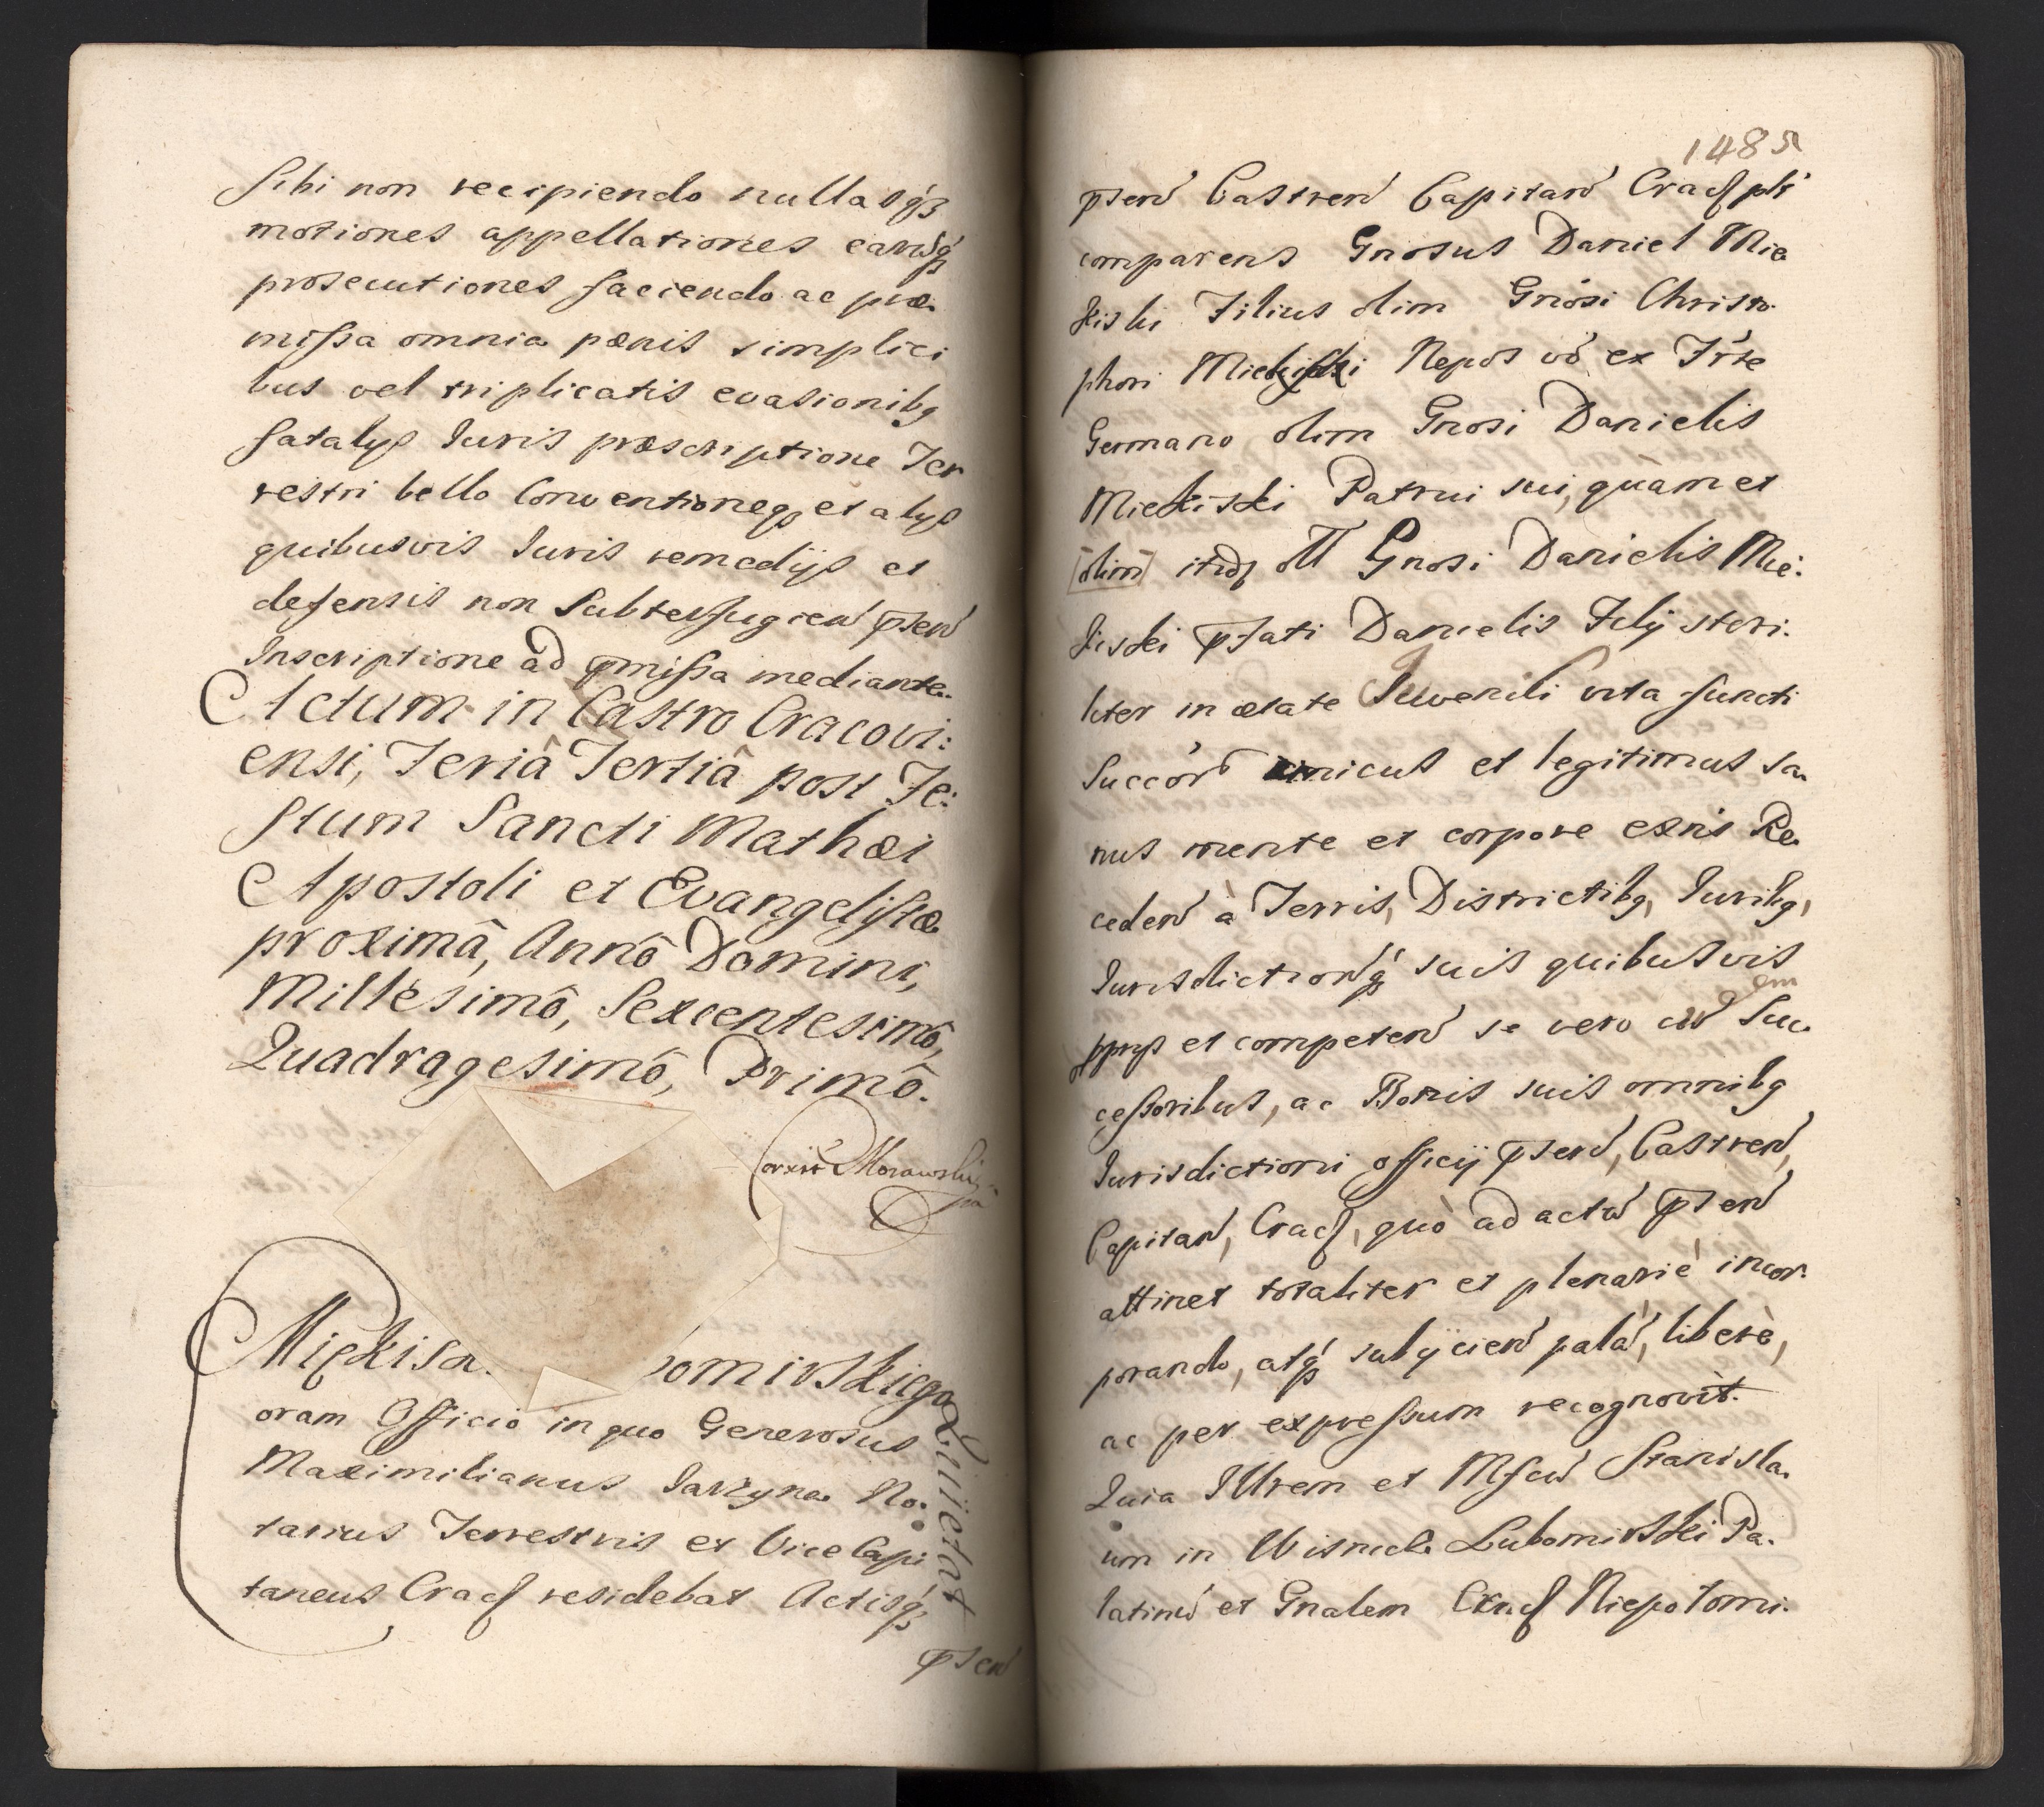 sibi non recipiendo nullasq́ꝫ
motiones appellationes earūq́ꝫ
prosecutiones faciendo ac præ
missa omnia pænis simplici
bus vel triplicatis evasionibꝫ
fatalỹs Juris præscriptione Ter
restri bello Conventioneqꝫ et alỹs
quibusvis Juris remedijs et
defensis non Subterfugien̄ p̄sen̄
Inscriptione ad p̄missa mediante.
Actum in Castro Cracovi:
ensi, Feriâ Tertiâ post Fe:
stum Sancti Mathæi
Apostoli et Evangelistæ
proximâ, Annô Domini,
Millesimô, Sexcentesimô,
Quadragesimô, Primô.
Morawski
Miękisz.
omirskiego
Quietat
oram Officio in quo Generosus
Maximilianus Jarzyna No.
tarius Terrestris et Vice Capi
taneus Cracꝭ residebat Actisq́ꝫ
p̄sen̄
1485
p̄sen̄ Castren̄ Capitan̄ Cracꝭ plr̄
comparens Gn̄osus Daniel Mie
kiski Filius olim Gn̄osi Christo
phori Miekiski Nepos vō ex Fr̄e
Germano olim Gnosi Danielis
Miekiski Patrui sui, quàm et
[olim] itidꝫ olī Gnosi Danielis Mie:
kiski p̄fati Danielis Filij steri:
liter in ætate Juvenili vita functi
Succōr unicus et legitimus sa.
nus mente et corpore exn̄s Re
ceden̄ à Terris, Districtibꝫ, Juribꝫ,
Jurisdictionq́ꝫ suis quibusvis
pprijs et competen̄ se vero cū Suc
em
cessoribus, ac Bonis suis omnibꝫ
Jurisdictioni officij p̄sen̄, Castren̄,
Capitan̄, Cracꝭ, quò ad actū p̄sen̄
attinet totaliter et plenariè incor:
porando, atq́ꝫ subijcien̄ palā, liberè,
ac per expressum recognovit.
Quia Illrem et Mfcū Stanisla.
um in Wisnicze Lubomirski Pa.
latinū et Gnalem Cracꝭ Niepołomi.